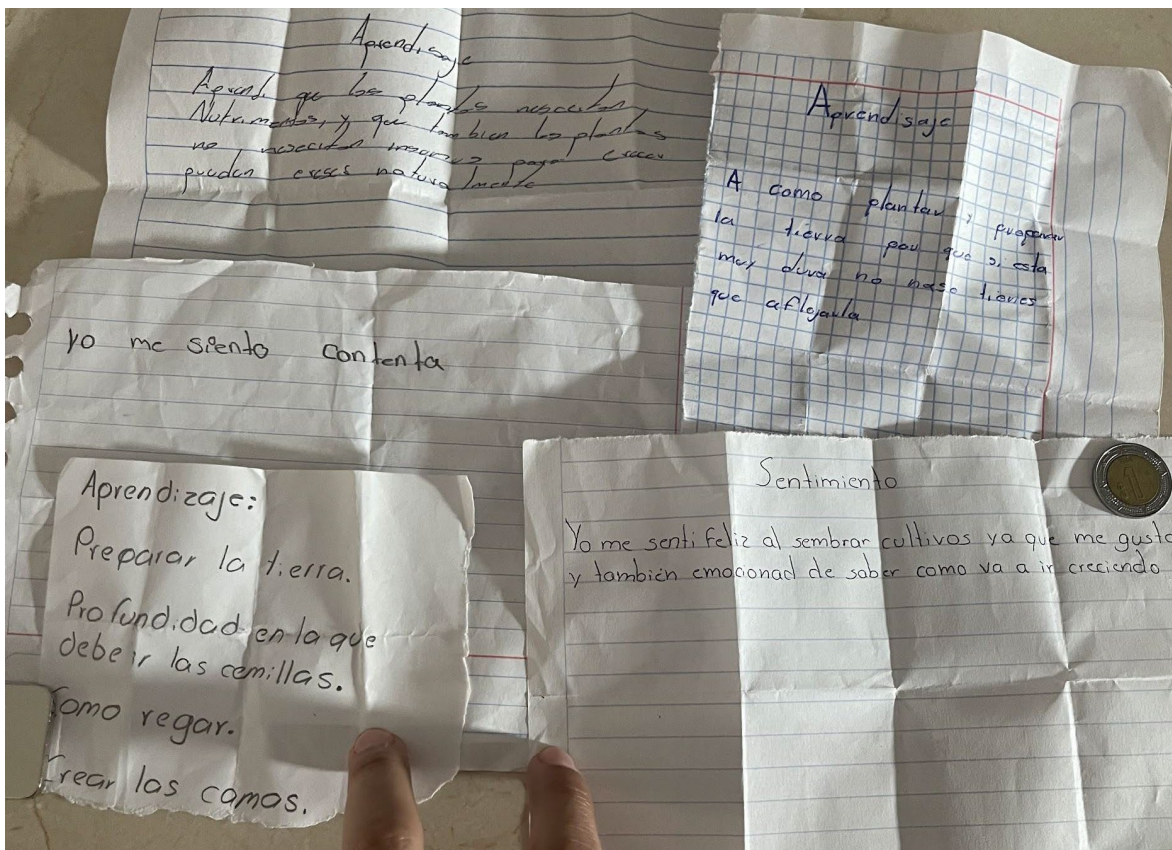 Aprendisaje
Aprendi que las plantas nesecitan
Nutrimentos, y que tambien las plantas
no nesecitan para crecer
pueden creser naturalmente
Aprendisaje
A como plantar y preparar
la tierra por que si esta
muy dura no nase tienes
que aflojarla
yo me siento contenta
Aprendizaje:
Preparar la tierra.
Profundidad en la que
debe ir las cemillas.
Como regar.
Crear las camas.
Sentimiento
Yo me senti feliz al sembrar cultivos ya que me gusta
y tambien emocionad de saber como va a ir creciendo
$1